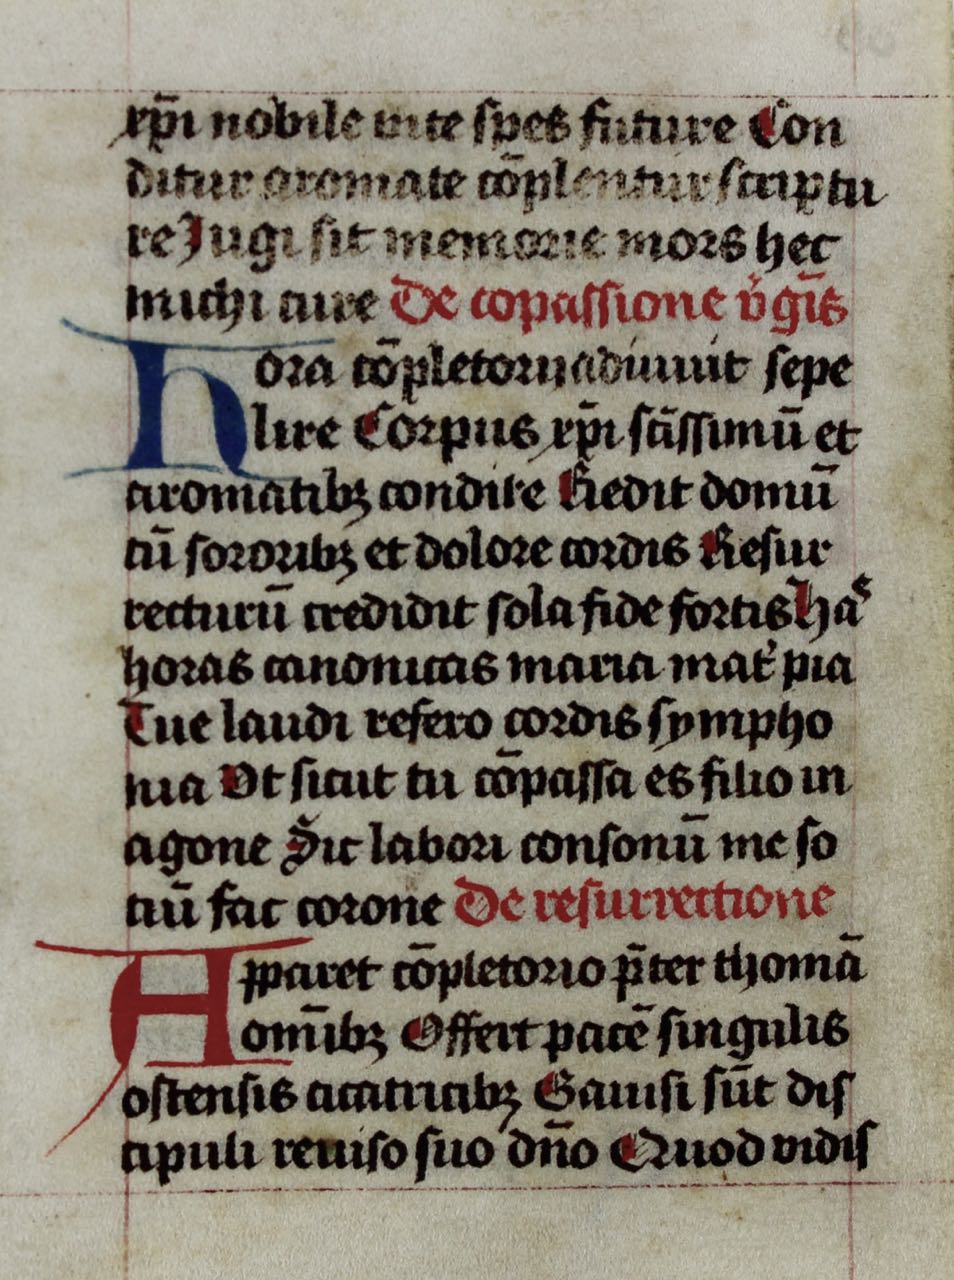 xp̄i nobile vite spes future Con
ditur aromate cōplentur scriptu
re Jugi sit memorie mors hec
michi cure De copassione v̄gīs
Hora cōpletorij adiuuit sepe
lire Corpus xp̄i sc̄issimū et
aromatibꝫ condire Rediit domū
cū sororibꝫ et dolore cordis Resur
recturū credidit sola fide fortis Has
horas canonicas maria mat̉ pia
Tue laudi refero cordis sympho
nia Vt sicut tu cōpassa es filio in
agone Sic labori consonū me so
ciū fac corone De resurrectione
Apparet cōpletorio p̄ter thomā
om̄ibꝫ Offert pacē singulis
ostensis cicatricibꝫ Gauisi sūt dis
cipuli reuiso suo dn̄o Quod vidis